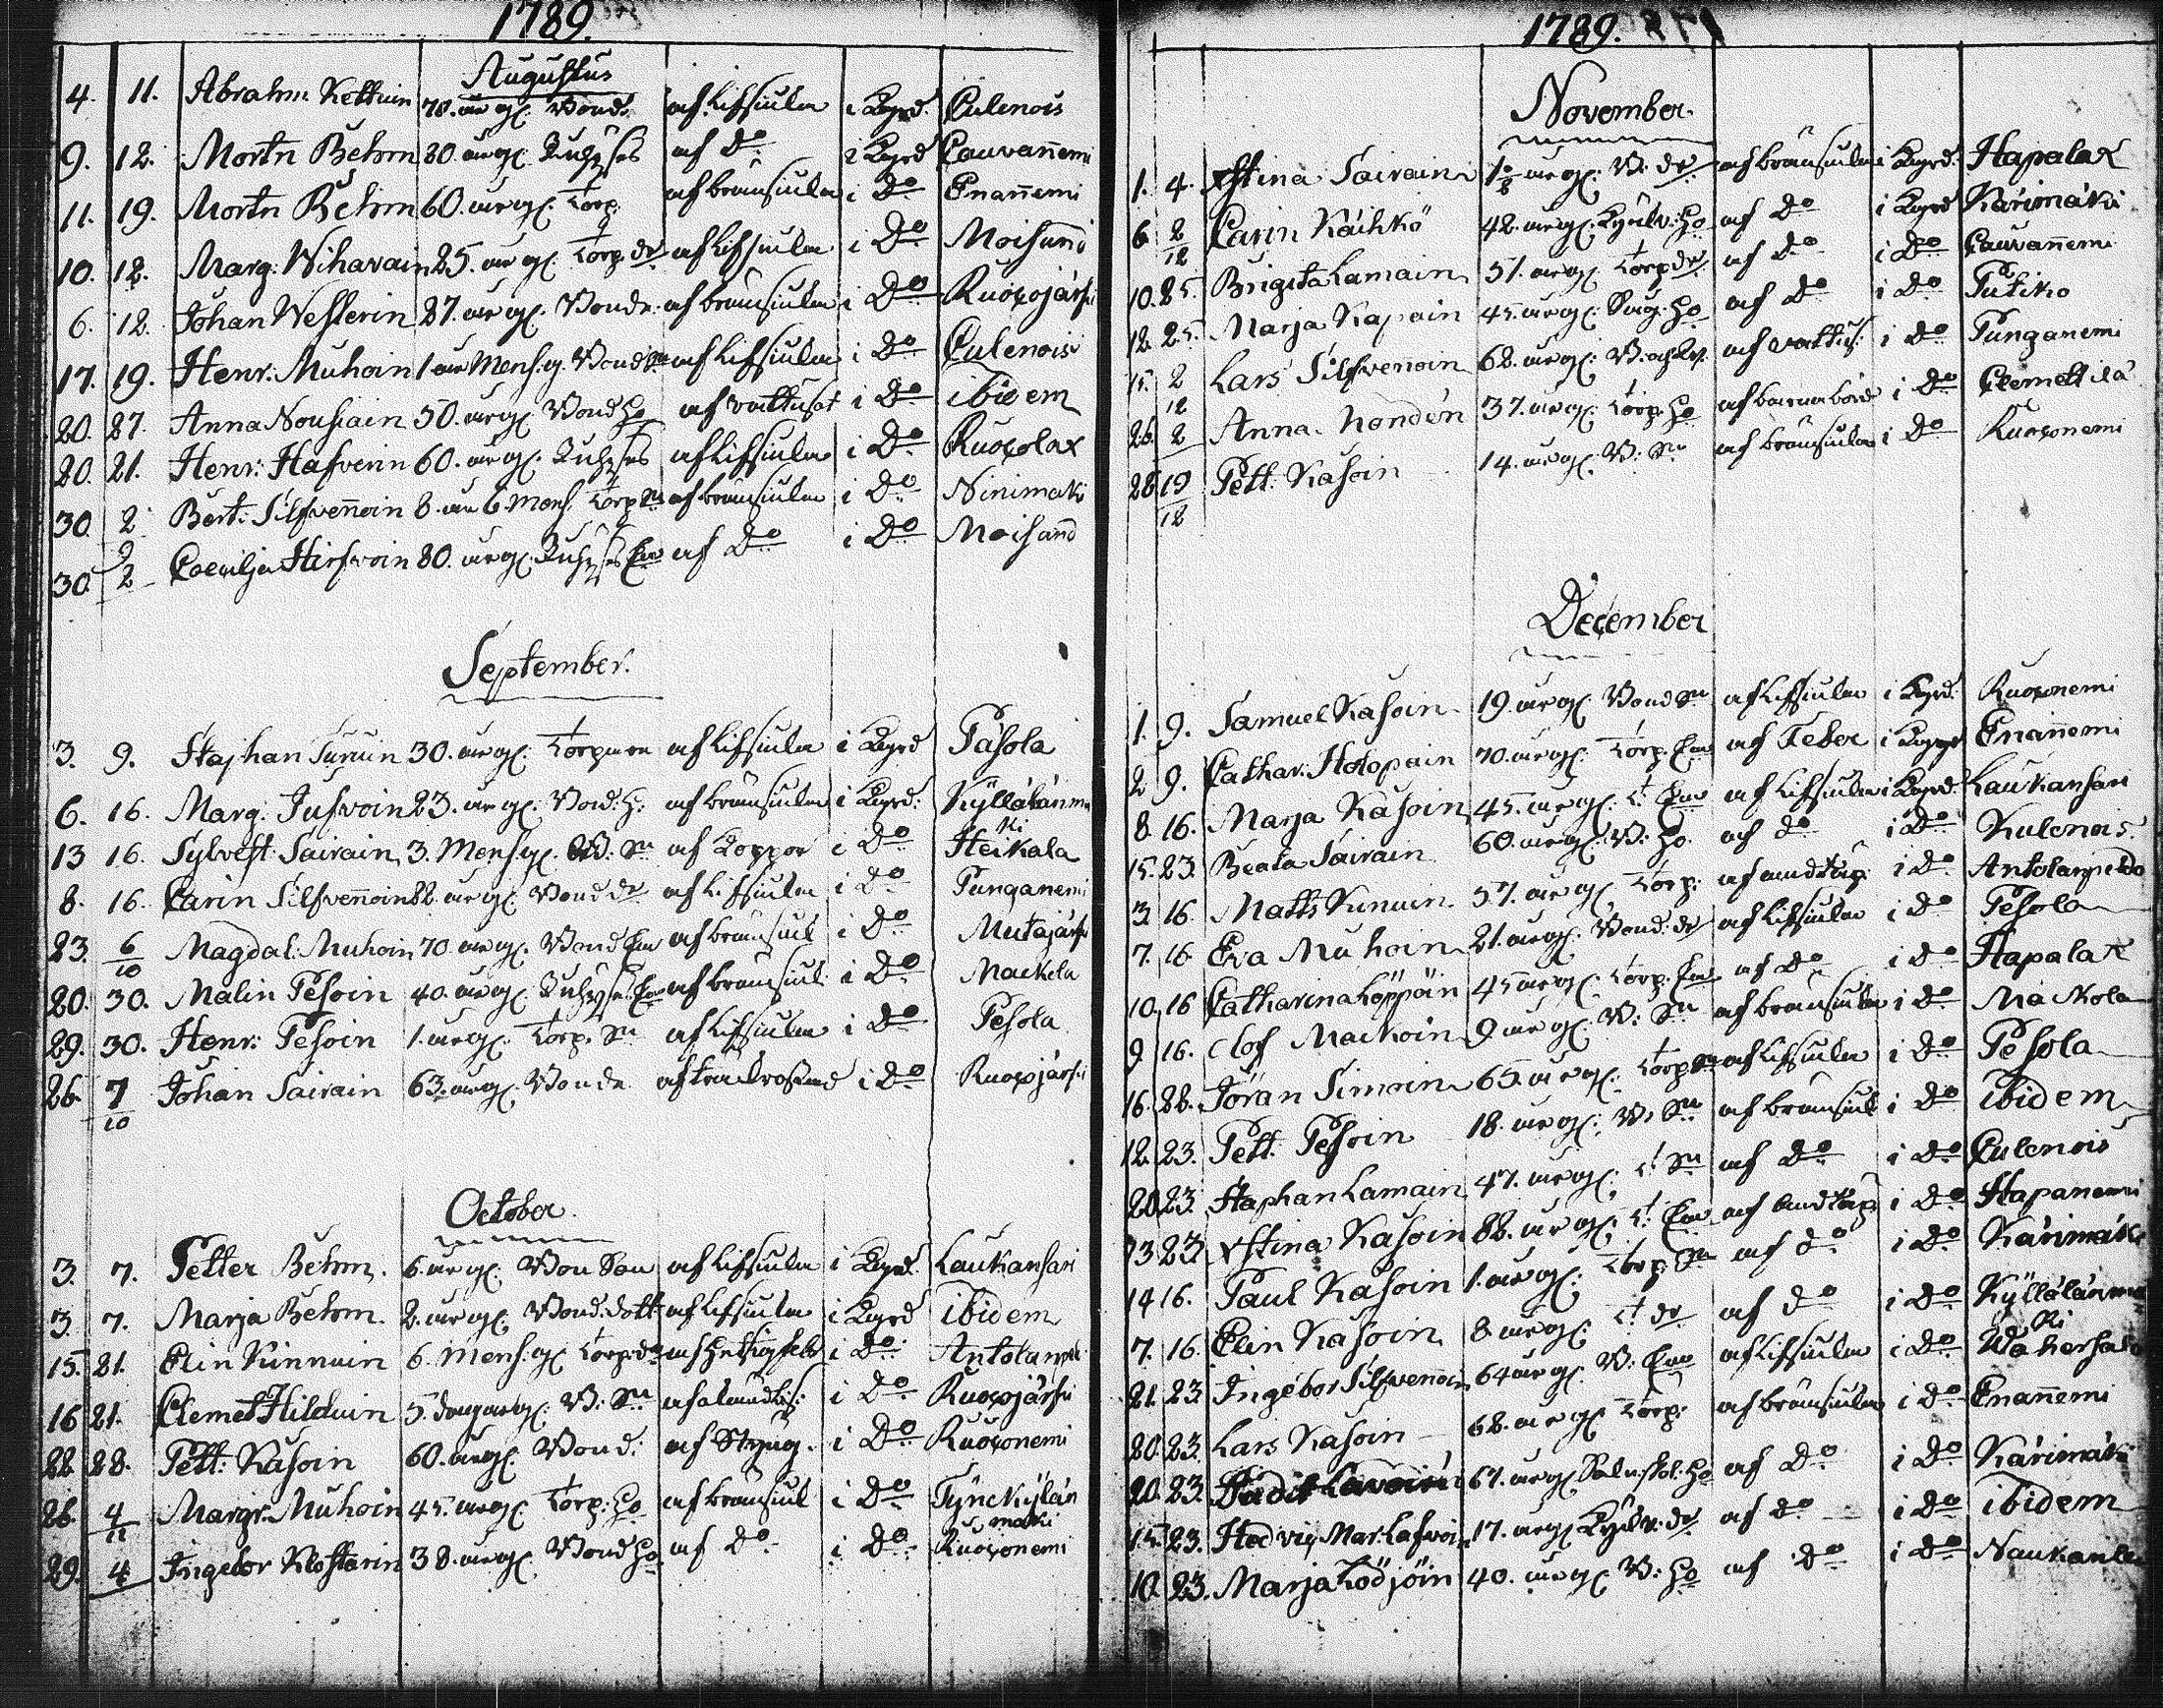 1789.
Augustus
4. 11. Abrahm Kettuin 70. år g. Bond. af Lifsiukn i Kgrd. Culenois
9. 12. Mortn Behm 80. år g. Inhyses af Do i Kgrd Cauvañemi
11. 19. Mortn Behm 60. år g. Torp. af brånsiukn i Do Enañemi
10. 12. Marg. Wihavain 25. år g. Torp. dr af Lifsiukn i Do Moisand
6. 12. Johan Westerin 27. år g. Bonde af brånsiukn i Do Ruocojärfvi
17. 19. Henr: Muhoin 1 år Mens. g. Bond Sn af Lifsiukn i Do Culenois
20. 27. Anna Nousiain 50. år g. Bond Ho af vattusot i Do ibidem
20. 21. Henr: Hafverin 60. år g. Inhyses af Lifsiukn i Do Ruocolax
30. 2 Bert: Silfveñoin 8. år 6. Mens. Torp Sn af brånsiukn i Do Ninimaki
30. 2/9 Coecilja Hirfvoin 80. år g. Inhyses Enk af Do i Do Moisand
September.
3. 9. Staphan Turuin 30. år g. Torparen af Lifsiukn i Kgrd Päsola
6. 16. Marg. Jufvoin 23. år g. Bond. H: af brånsiukn i Kgrd: Kylläländmäki
13 16. Sylvest Sairain 3. Mens. g. B: Sn af Koppor i Do Heikala
8. 16. Carin Silfveñoin 22. år g. Bond dr af Lifsiukn i Do Punganemi
23. 6/10 Magdal: Muhoin 70. år g. Bond Enk af brånsiuk i Do Mutajärfvi
20. 30. Malin Pesoin 40. år g. Inhyses Enk af brånsiuk i Do Mackela
29. 30. Henr: Pesoin 1. år g. Torp. Sn af Lifsiukn i Do Pesola
26. 7/10 Johan Sairain 63. år g. Bonde i Do Ruocojärfvi
October.
3. 7. Petter Behm. 6. år g. Bon Son af Lifsiukn i Kgrd. Laukansari
3. 7. Marja Behm. 2. år g. Bond. dott. af Lifsiukn i Kgrd ibidem
15. 21. Elin Kinnuin 6. Mens. g. Torp. dr i Do Antolanpeldo
16 21. Clemet Hilduin 5. dag. g. B: Sn i Do Ruocojärfvi
22. 28. Pett: Kasoin 60. år g. Bond: af Styng. i Do Ruoconemi
26. 4/11 Margr: Muhoin 45. år g. Torp. Ho af brånsiuk i Do Tynckylänmäki
29. 4 Ingebor Klostarin 38. år g. Bond Ho af Do i Do Ruoconemi
1789.
November.
1. 4. Xstina Sairain B: dr af brånsiukn i Kgrd. Hapalax
6. 2/12 Carin Käihkö 42. år g. Ho af Do i Kgrd Kärimäki
10. 25. Brigita Lamain 51. år g. Torp dr af Do i Do Cauvañemi
12. 25. Marja Kapain 45. år g. Ho af Do i Do Putiko
15. 2/12 Lars Silfvenoin 62. år g. af vattus: i Do Punganemi
26. 2 Anna Nondén 37. år g. Torp: Ho af barnabörd i Do Clemettilä
28. 19/12 Pett: Kasoin 14. år g. B: Sn af brånsiukn i Do Ruoconemi
December
1. 9. Samuel Kasoin 19. år g. Bond Sn af Lifsiukn i Kgrd: Ruoconemi
2 9. Cathar: Holopain 70. år g. Torp. Enk af Feber i Kgrd Enañemi
8. 16. Marja Kasoin 45. år g. T: Enk af Lifsiukn i Kgrd: Laukansari
15. 23. Beata Sairain 60. år g. B: Ho. af Do i Do Kulenois.
3 16. Matts Kinuin 57. år g. Torp: af andtäp i Do Antolanpeldo
7. 16 Eva Muhoin 21. år g. Bond: dr af Lifsiukn i Do Pesola
10. 16 Catharina Löppöin 45 år g. Torp. Enk af Do i Do Hapalax
9 16. Olof Mackoin 9 år g. B: Sn af brånsiukn i Do Mackola
16. 22. Jöran Simoin 65. år g. Torp af Lifsiukn i Do Pesola
12. 23. Pett: Pesoin 18. år g. B: Sn af brånsiuk i Do ibidem
20. 23. Staphan Lamain 47. år g. T: Sn af Do i Do Culenois
13 23 Xstina Kasoin 82. år g. T: Enk af andtäp i Do Hapanemi
14 16. Paul Kasoin 1. år g. Torp. Sn af Do i Do Kärimäki
7. 16. Elin Kasoin 8. år g. T: dr af Do i Do Kylläländmäki
21. 23 Ingebor Silfvenoin 64 år g. B: Enk af Lifsiukn i Do Wahersalo
20. 23. Lars Kasoin 62. år g. Torp: af brånsiukn i Do Enañemi
20. 23. Judit Lavoin 67. år g. Ho af Do i Do Kärimäki
15. 23. Hedvig Mar: Lafvoin 17. år g. dr af Do i Do ibidem
10. 23. Marja Ködjöin 40. år g. B: Ho af Do i Do Naukanl